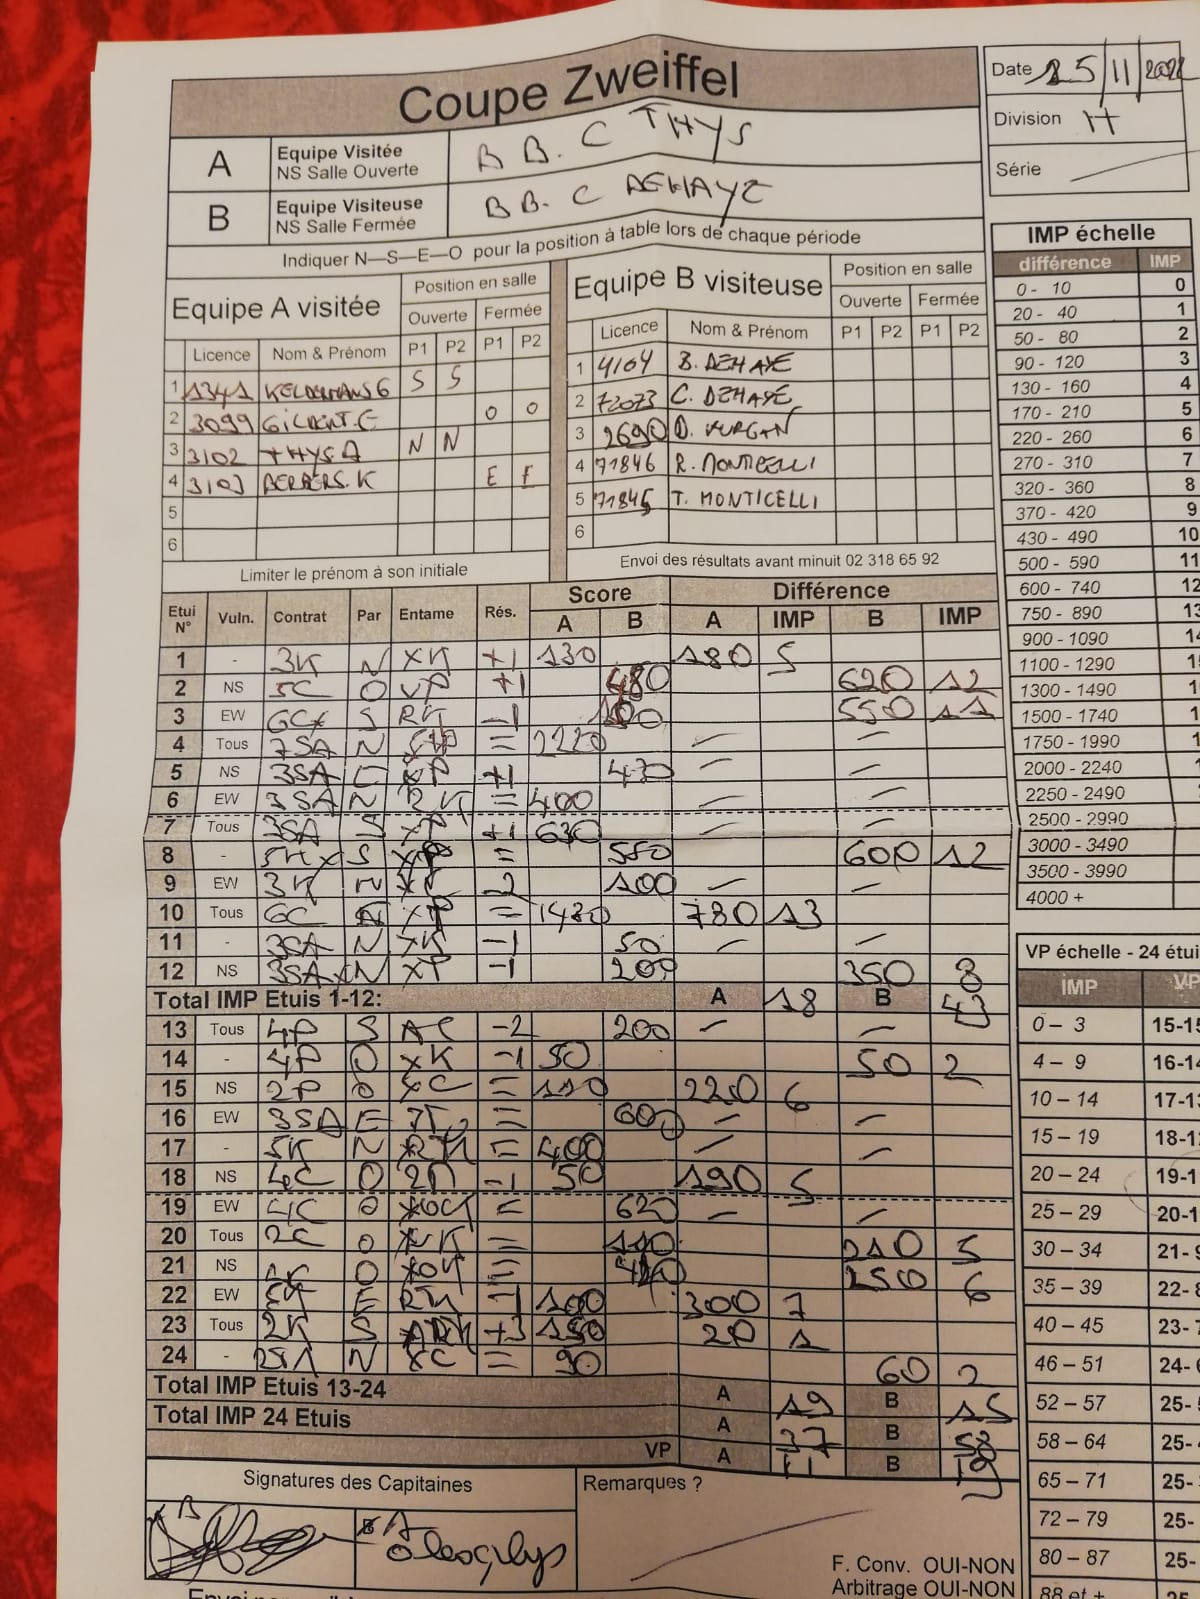 Coupe Zweiffel
Date 25/11/2022
Division H
Série
A Equipe Visitée NS Salle Ouverte B B. C THYS
B Equipe Visiteuse NS Salle Fermée B B. C DEHAYE
Indiquer N—S—E—O pour la position à table lors de chaque période
Equipe A visitée Position en salle
Ouverte Fermée
Licence Nom & Prénom P1 P2 P1 P2
1 1341 KELDERMANS G S S
2 3099 O O
3 3102 THYS A N N
4 3103 K E E
5
6
Limiter le prénom à son initiale
Equipe B visiteuse Position en salle
Ouverte Fermée
Licence Nom & Prénom P1 P2 P1 P2
1 4104 B. DEHAYE
2 72073 C. DEHAYE
3 2690 D.
4 71846 R. MONTICELLI
5 71845 T. MONTICELLI
6
Envoi des résultats avant minuit 02 318 65 92
IMP échelle
différence IMP
0 - 10 0
20 - 40 1
50 - 80 2
90 - 120 3
130 - 160 4
170 - 210 5
220 - 260 6
270 - 310 7
320 - 360 8
370 - 420 9
430 - 490 10
500 - 590 11
600 - 740 12
750 - 890
900 - 1090
1100 - 1290
1300 - 1490
1500 - 1740
1750 - 1990
2000 - 2240
2250 - 2490
2500 - 2990
3000 - 3490
3500 - 3990
4000 +
Etui N° Vuln. Contrat Par Entame Rés. Score A B Différence A IMP B IMP
1 - 3K N XK +1 130 180 5
2 NS 5C O VP +1 480 620 12
3 EW 6Cx S RK -1 100 550 11
4 Tous 7SA N = 2220 — —
5 NS 3SA E XP +1 430 — —
6 EW 3SA N RK = 400 — —
7 Tous 3SA S XP +1 630 — —
8 - 5Kx S XP = 550 600 12
9 EW 3K N -2 100 — —
10 Tous 6C N XP = 1430 780 13
11 - 3SA N XK -1 50 — —
12 NS 3SAx N XP -1 200 350 8
Total IMP Etuis 1-12: A 18 B 43
13 Tous 4P S AC -2 200 — —
14 - 4P O XK -1 50 50 2
15 NS 2P O XC = 110 220 6
16 EW 3SA E = 600 — —
17 - 5K N = 400 — —
18 NS 4C O -1 50 190 5
19 EW 4C O = 620 — —
20 Tous 2C O XK = 110 210 5
21 NS O = 250 6
22 EW 5K E -1 100 300 7
23 Tous 2K S +3 150 20 1
24 - 2SA N XC = 90 60 2
Total IMP Etuis 13-24 A 19 B 15
Total IMP 24 Etuis A 37 B 58
VP A 11 B 19
VP échelle - 24 étui
IMP VP
0 – 3 15-15
4 – 9 16-14
10 – 14 17-13
15 – 19 18-1
20 – 24 19-1
25 – 29 20-1
30 – 34 21- 9
35 – 39 22- 8
40 – 45 23- 7
46 – 51 24- 6
52 – 57 25-
58 – 64 25-
65 – 71 25-
72 – 79 25-
80 – 87 25-
88 et + 25
Signatures des Capitaines
B
A
Remarques ?
F. Conv. OUI-NON
Arbitrage OUI-NON